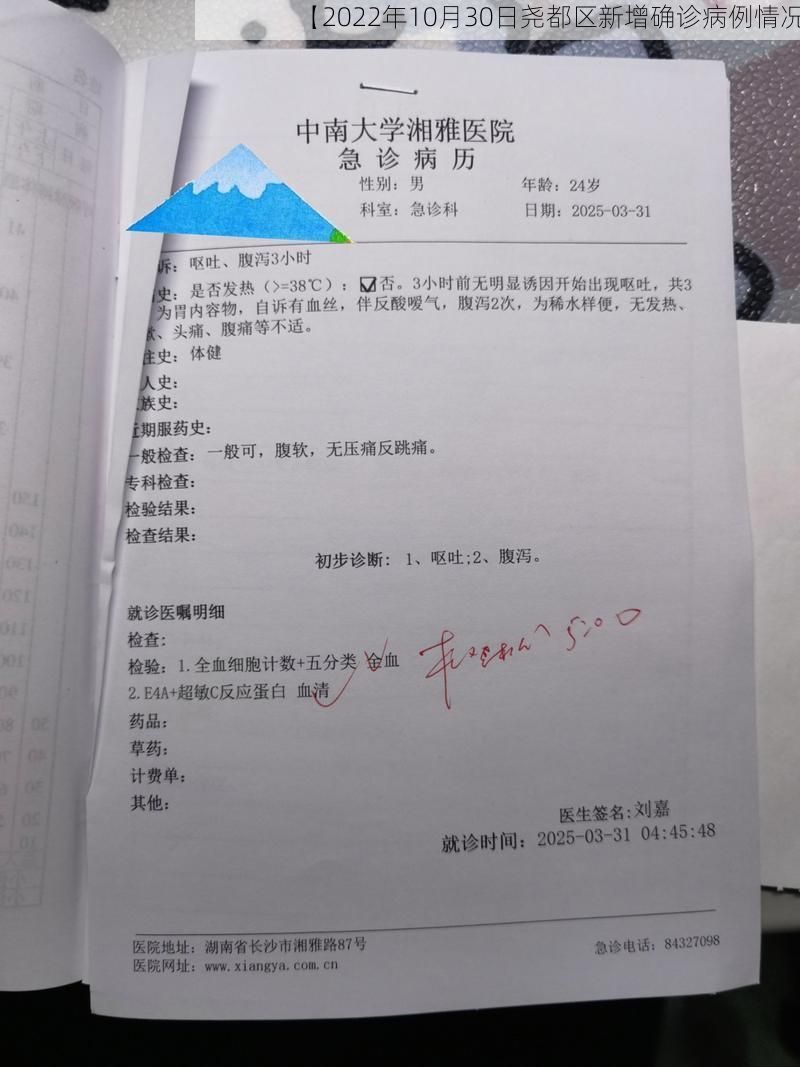 【2022年10月30日尧都区新增确诊病例情况
中南大学湘雅医院
急诊病历
性别：男 年龄：24岁
科室：急诊科 日期：2025-03-31
诉：呕吐、腹泻3小时
史：是否发热（>=38℃）：☑否。3小时前无明显诱因开始出现呕吐，共3
为胃内容物，自诉有血丝，伴反酸嗳气，腹泻2次，为稀水样便，无发热、
、头痛、腹痛等不适。
往史：体健
人史：
族史：
近期服药史：
一般检查：一般可，腹软，无压痛反跳痛。
专科检查：
检验结果：
检查结果：
初步诊断：1、呕吐;2、腹泻。
就诊医嘱明细
检查：
检验：1.全血细胞计数+五分类 全血
2.E4A+超敏C反应蛋白 血清
5:00
药品：
草药：
计费单：
其他：
医生签名:刘嘉
就诊时间：2025-03-31 04:45:48
医院地址：湖南省长沙市湘雅路87号 急诊电话：84327098
医院网址：www.xiangya.com.cn